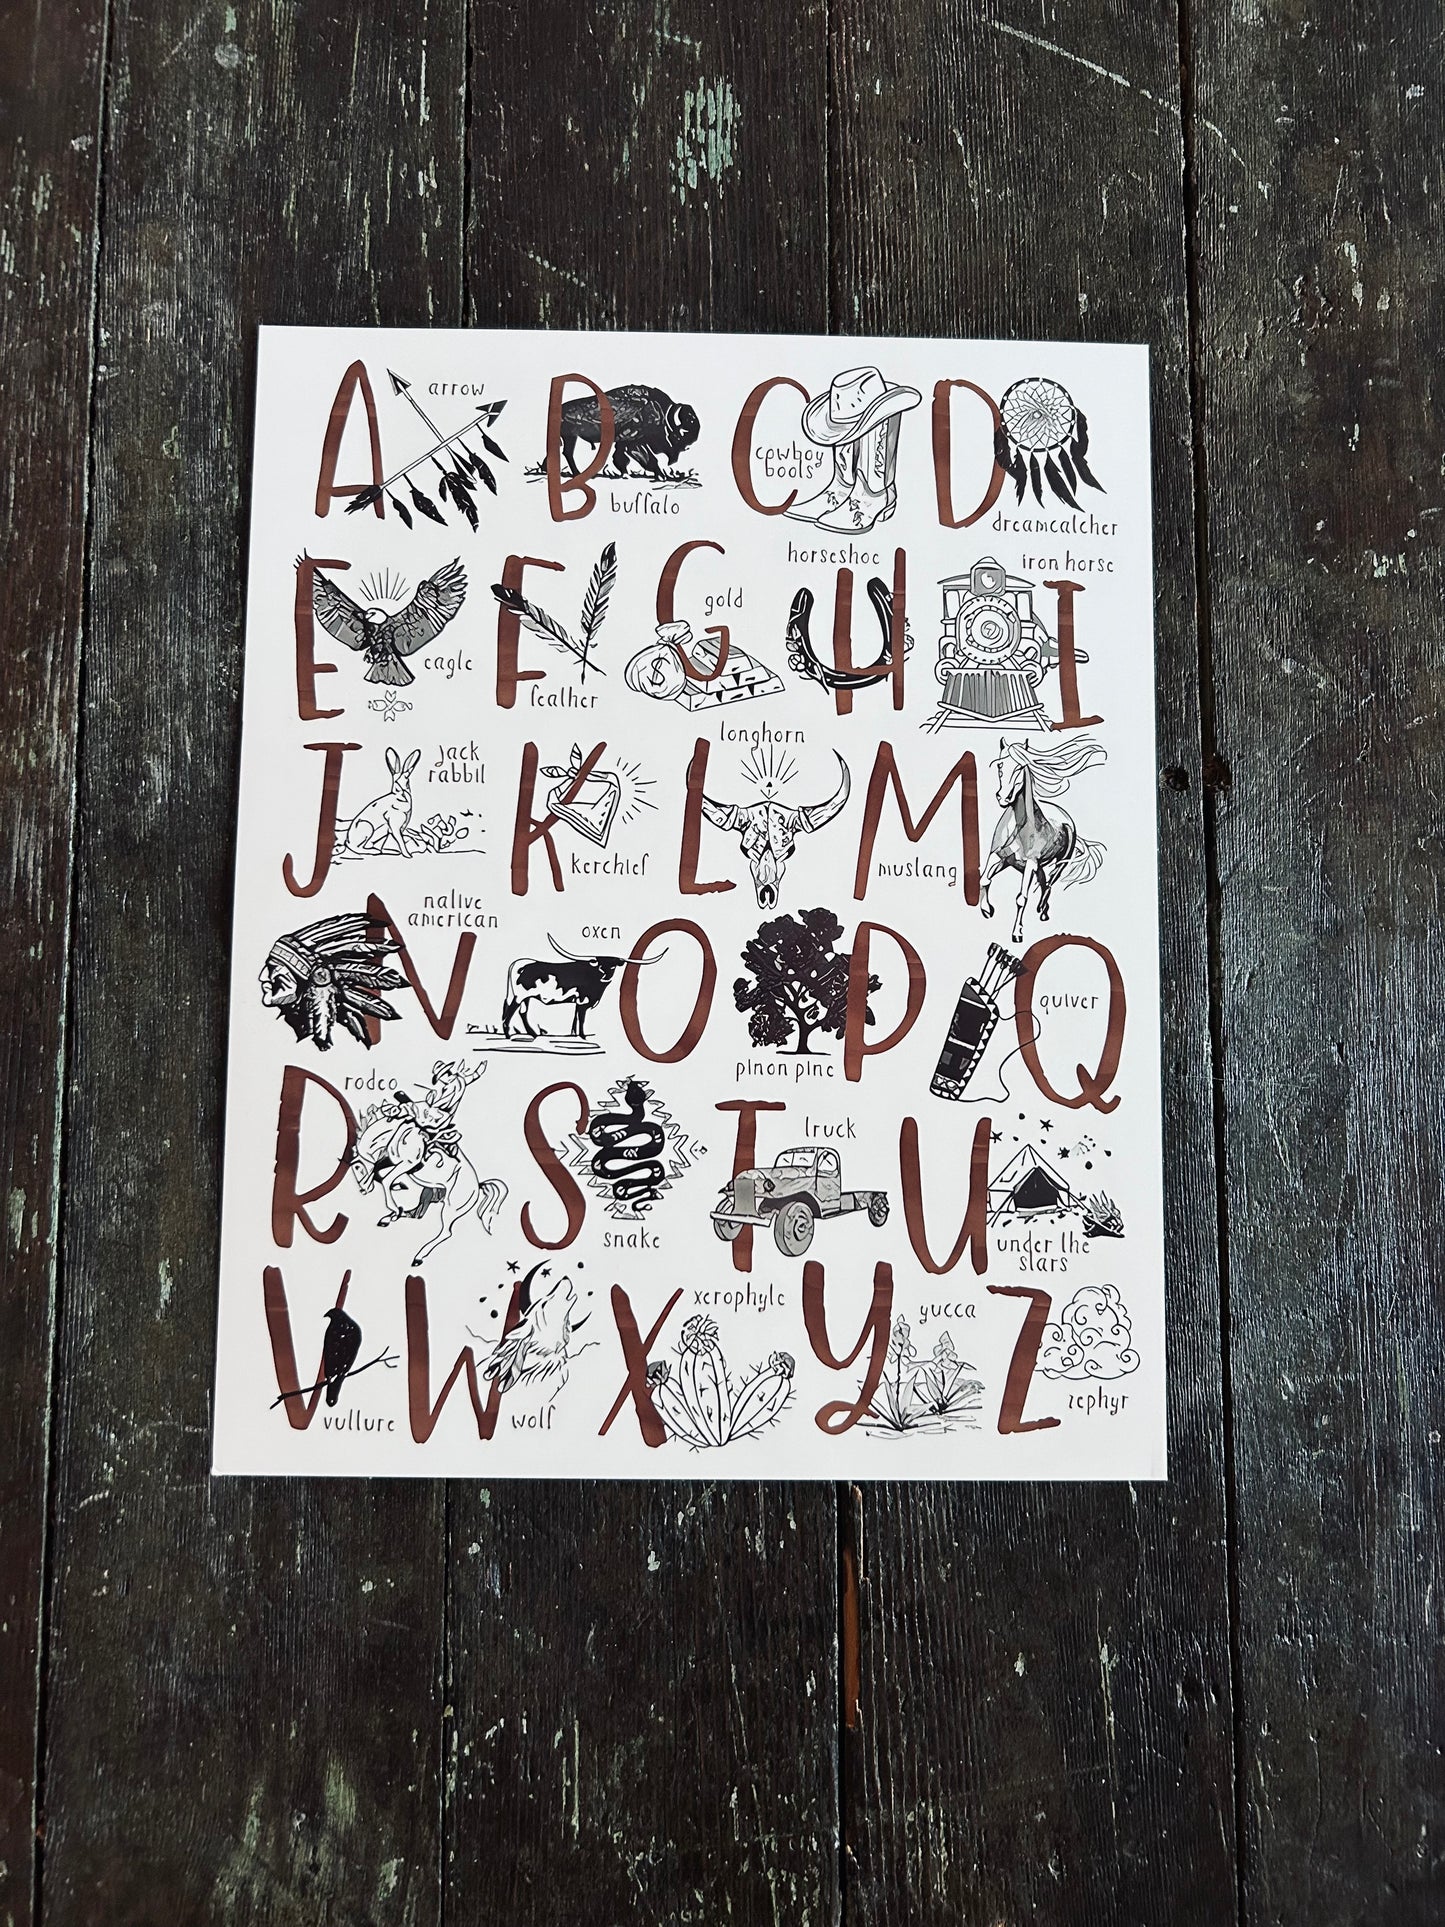 A
arrow
B
buffalo
C
cowboy
boots
D
dreamcatcher
E
eagle
F
feather
G
gold
$
H
horseshoe
I
iron horse
7
J
jack
rabbit
K
kerchief
L
longhorn
M
mustang
N
native
american
O
oxen
P
pinon pine
Q
quiver
R
rodeo
S
snake
T
truck
U
under the
stars
V
vulture
W
wolf
X
xerophyte
Y
yucca
Z
zephyr